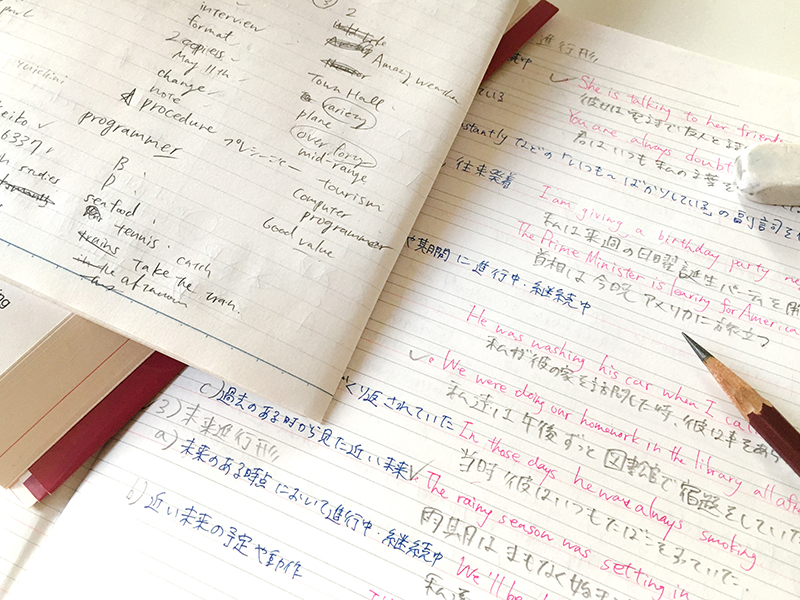 interview
format
2 copies
May 11th
change
note
procedure プレシージャー
programmer
B
D
seafood
tennis. catch
trains take the train.
in the afternoon
yuichini
6337
2
Town Hall.
variety
plane
over forty
mid-range
tourism
computer
programmer
Good value
進行形
She is talking to her friend
彼女は電話で友人と話
You are always doubt
君はいつも私の言葉を
constantly などの「いつも〜ばかりしている」の副詞を
往来発着
I am giving a birthday party ne
私は来週の日曜誕生パーティを開
The Prime Minister is leaving for America
首相は今晩アメリカに旅立つ
や期間に進行中・継続中
He was washing his car when I call
私が彼の家を訪問した時、彼は車をあら
We were doing our homework in the library all after
私達は午後ずっと図書館で宿題をしていた
くり返されていた
In those days he was always smoking.
当時彼はいつもたばこを吸っていた.
c) 過去のある時から見た近い未来
The rainy season was setting in
雨期はまもなく始ま
3) 未来進行形
a) 未来のある時点において進行中・継続中
We'll be
私達
b) 近い未来の予定や動作